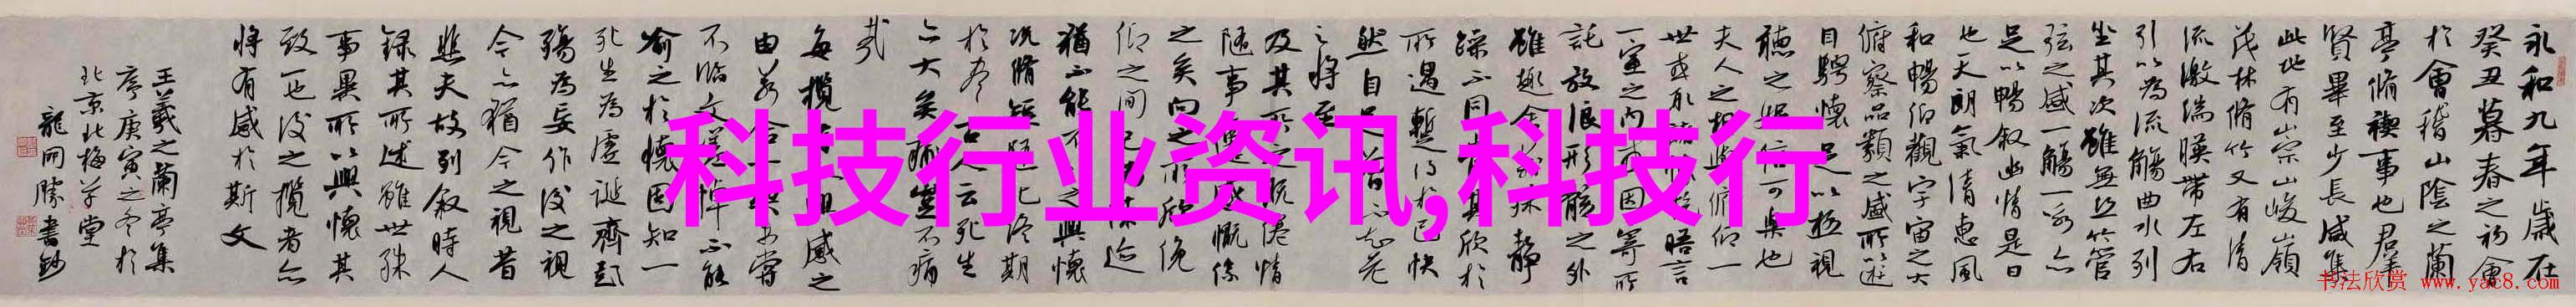 永和九年歲在
癸丑暮春之初會
於會稽山陰之蘭
亭脩禊事也羣
賢畢至少長咸集
此地有崇山峻嶺
茂林脩竹又有清
流激湍暎帶左右
引以為流觴曲水列
坐其次雖無絲竹管
弦之盛一觴一詠亦
足以暢敘幽情是日
也天朗氣清惠風
和暢仰觀宇宙之大
俯察品類之盛所以遊
目騁懷足以極視
聽之娛信可樂也
夫人之相與俯仰一
世或取諸懷抱晤言
一室之內或因寄所
託放浪形骸之外
雖趣舍萬殊靜
躁不同當其欣於
所遇蹔得於己快
然自足不知老
之將至
及其所之既倦情
隨事遷感慨係
之矣向之所欣俛
仰之間已為陳迹
猶不能不以之興懷
況脩短隨化終期
於盡古人云死生
亦大矣豈不痛
哉
每攬昔人興感之
由若合一契未嘗
不臨文嗟悼不能
喻之於懷固知一
死生為虛誕齊彭
殤為妄作後之視
今亦猶今之視昔
悲夫故列敘時人
錄其所述雖世殊
事異所以興懷其
致一也後之攬者亦
將有感於斯文
王羲之蘭亭集
序庚寅之冬於
北京北梅草堂
龍開勝書鈔
科技行业资讯,科技行
书法欣赏 www.yac8.com